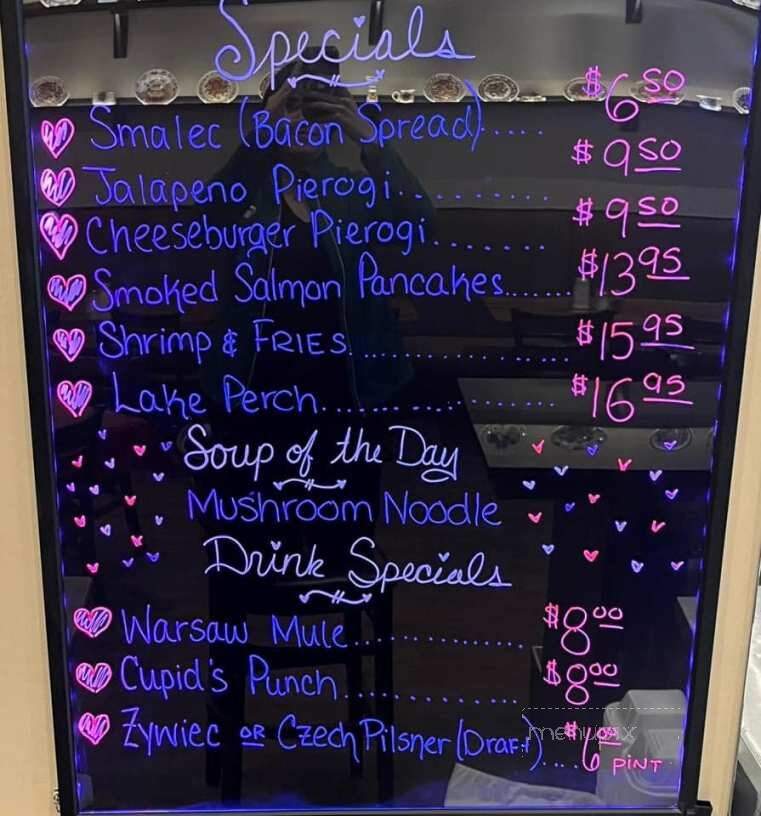 Specials
Smalec (Bacon Spread)..... $6 50
Jalapeno Pierogi........... $9 50
Cheeseburger Pierogi....... $9 50
Smoked Salmon Pancakes....... $13 95
Shrimp & FRIES................. $15 95
Lake Perch................... $16 95
Soup of the Day
Mushroom Noodle
Drink Specials
Warsaw Mule.............. $8 00
Cupid's Punch.............. $8 00
Żywiec OR Czech Pilsner (Draft).... $6 00 PINT
menupix